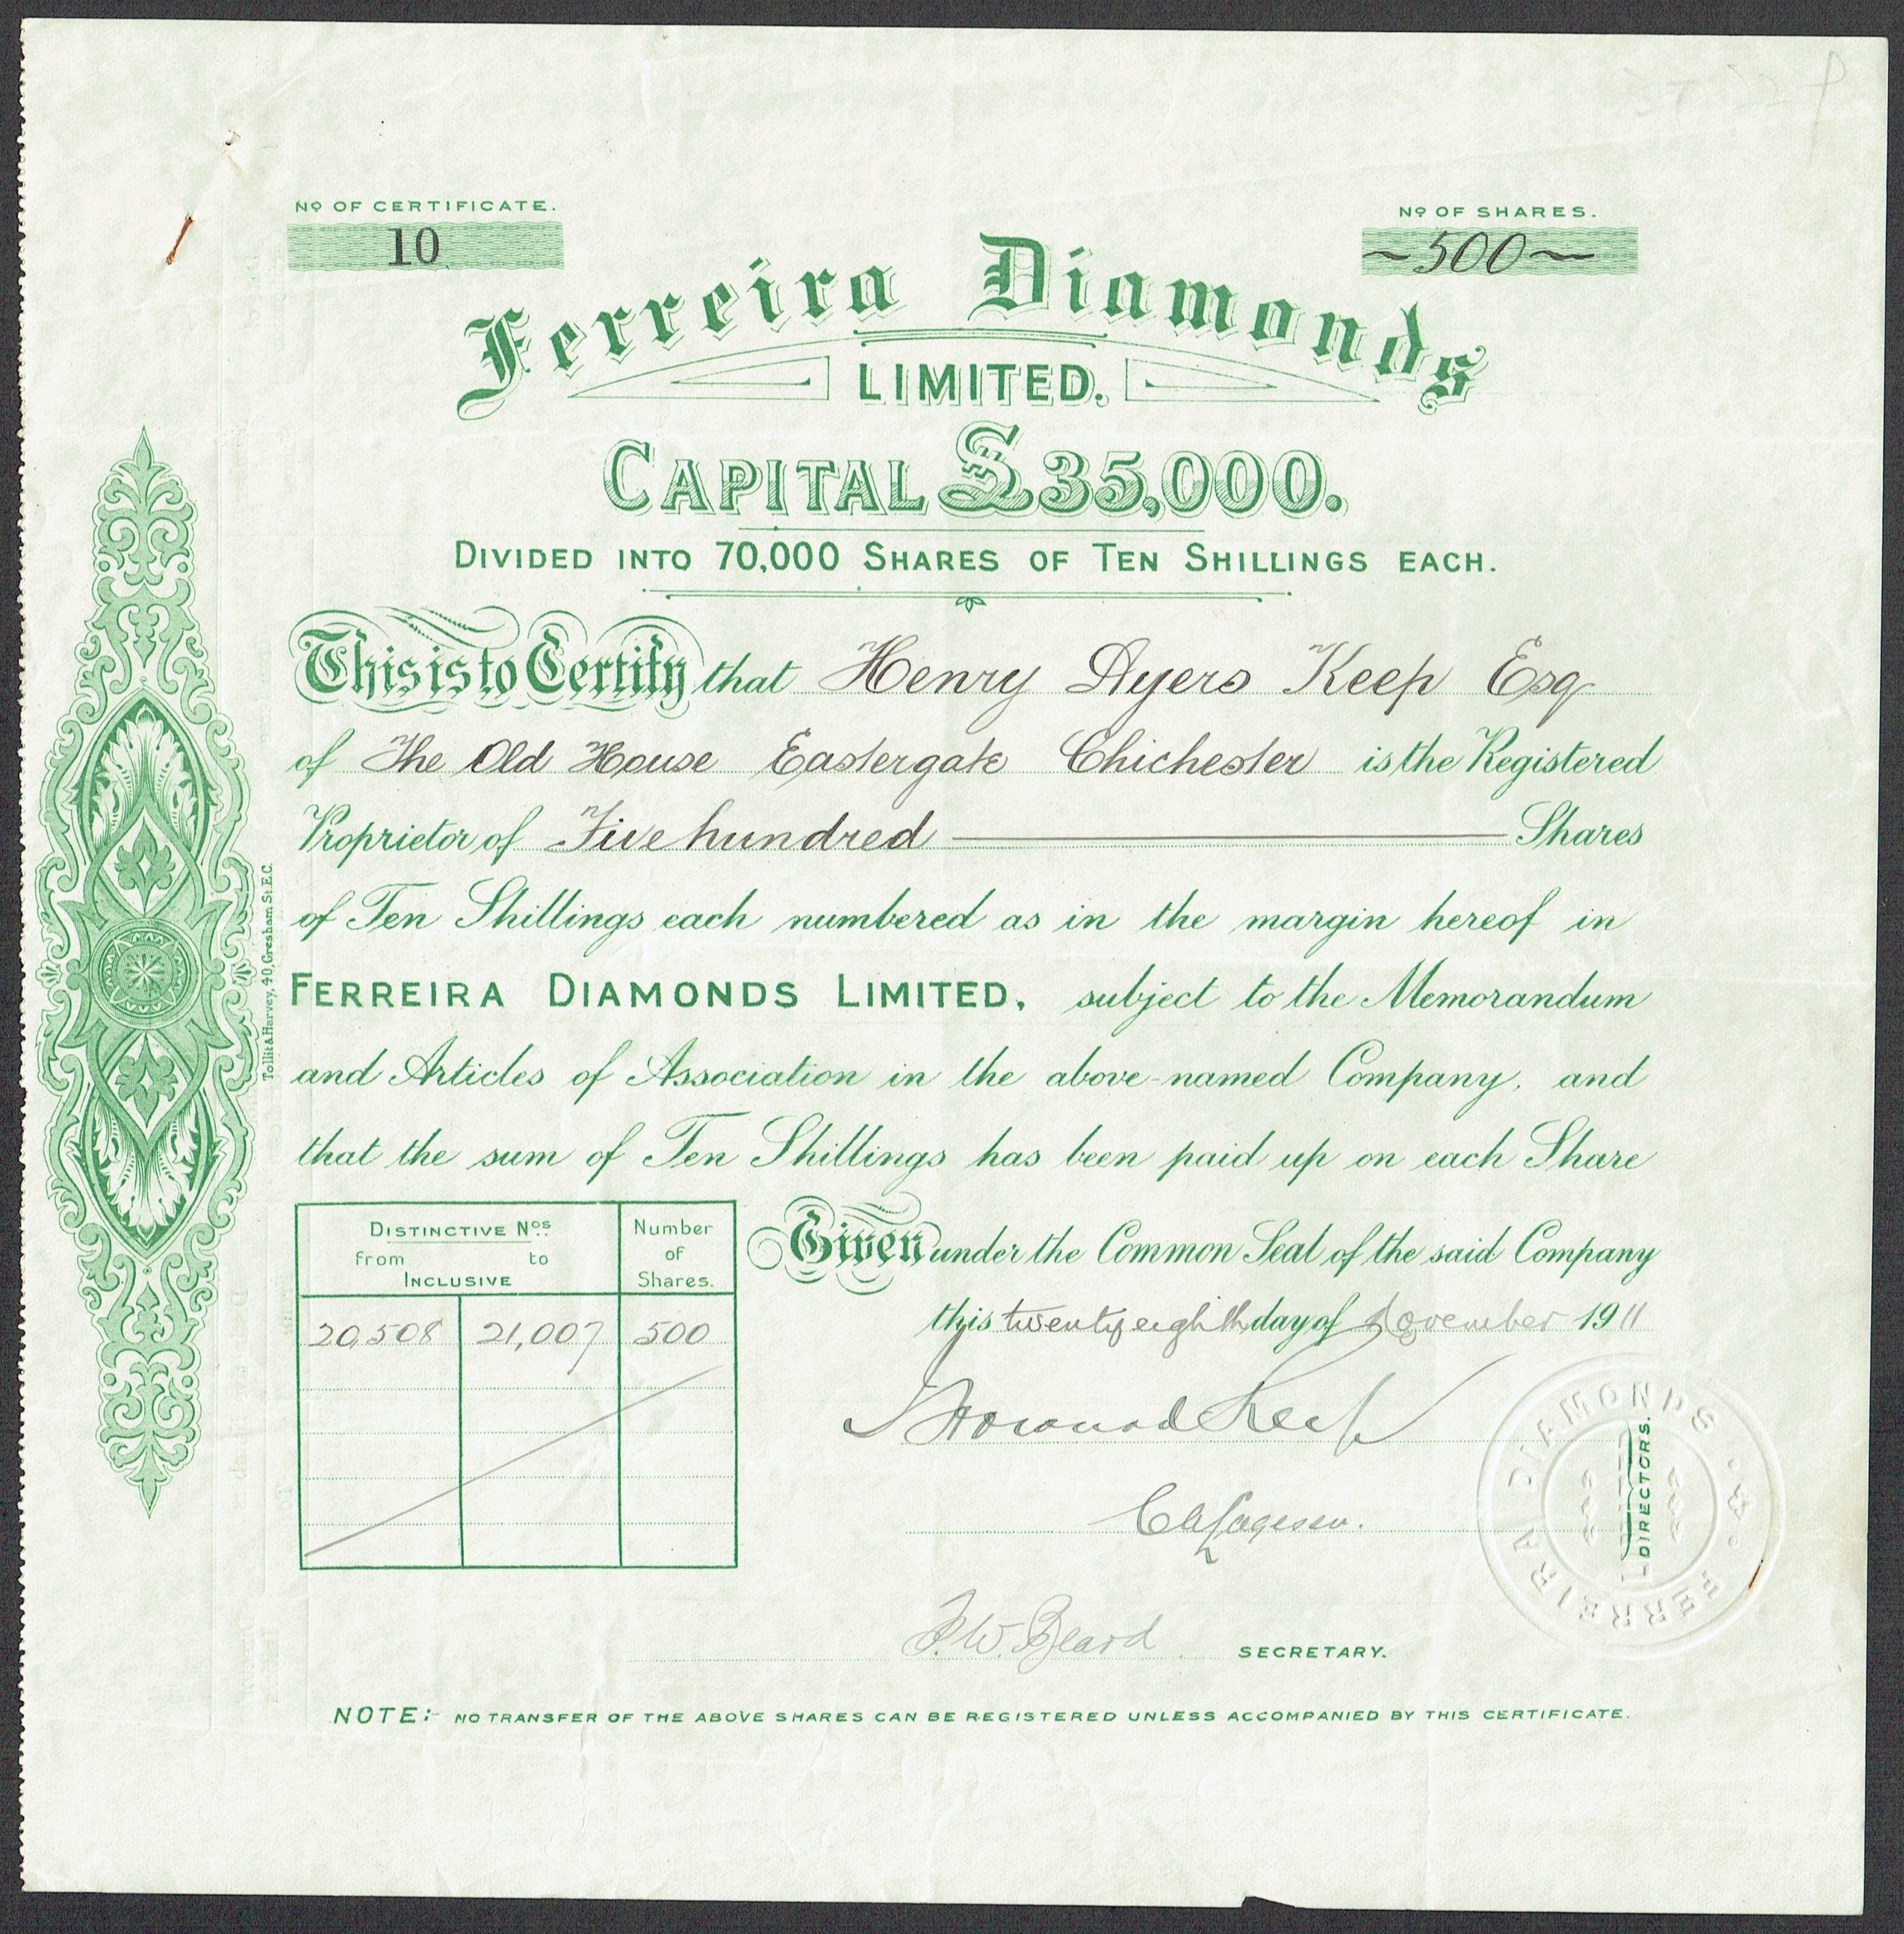 Nº OF CERTIFICATE.
10
Nº OF SHARES.
~500~
Ferreira Diamonds
LIMITED.
CAPITAL £35,000.
DIVIDED INTO 70,000 SHARES OF TEN SHILLINGS EACH.
This is to Certify that Henry Ayers Keep Esq
of The Old House Eastergate Chichester is the Registered
Proprietor of Five hundred Shares
of Ten Shillings each numbered as in the margin hereof in
FERREIRA DIAMONDS LIMITED, subject to the Memorandum
and Articles of Association in the above-named Company, and
that the sum of Ten Shillings has been paid up on each Share
Tollit & Harvey, 40, Gresham St. E.C.
DISTINCTIVE Nos.
from to
INCLUSIVE
Number
of
Shares.
20,508 21,007 500
Given under the Common Seal of the said Company
this twenty eighth day of November 1911
Howard Keep
DIRECTORS.
F.W. Beard SECRETARY.
FERREIRA DIAMONDS
NOTE:- NO TRANSFER OF THE ABOVE SHARES CAN BE REGISTERED UNLESS ACCOMPANIED BY THIS CERTIFICATE.